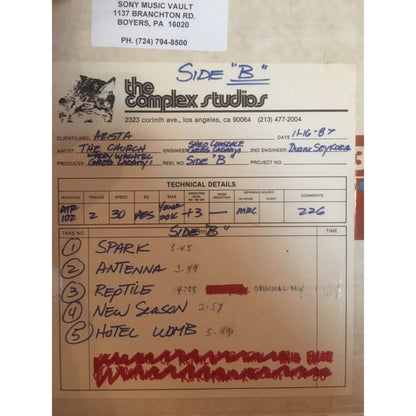 SONY MUSIC VAULT
1137 BRANCHTON RD.
BOYERS, PA 16020
PH. (724) 794-8500
SIDE "B"
the complex studios
2323 corinth ave., los angeles, ca 90064 (213) 477-2004
CLIENT/LABEL ARISTA 11-16-87
ARTIST THE CHURCH ENGINEER GREG LADANYI 2ND ENGINEER DUANE SEYKORA
PRODUCER WADDY WACHTEL GREG LADANYI REEL NO. SIDE "B" PROJECT NO.
TECHNICAL DETAILS
MACHINE TRACKS SPEED EQ BIAS OPERATING LEVEL NOISE REDUCTION REFERENCE SOURCE IN HOUSE CLIENT COMMENTS
ATR 102 2 30 +3 — MRL 226
TAKE NO. SIDE "B" TIME
1 SPARK 3.45
2 ANTENNA 3.49
3 REPTILE ORIGINAL MIX
4 NEW SEASON 2.57
5 HOTEL WOMB